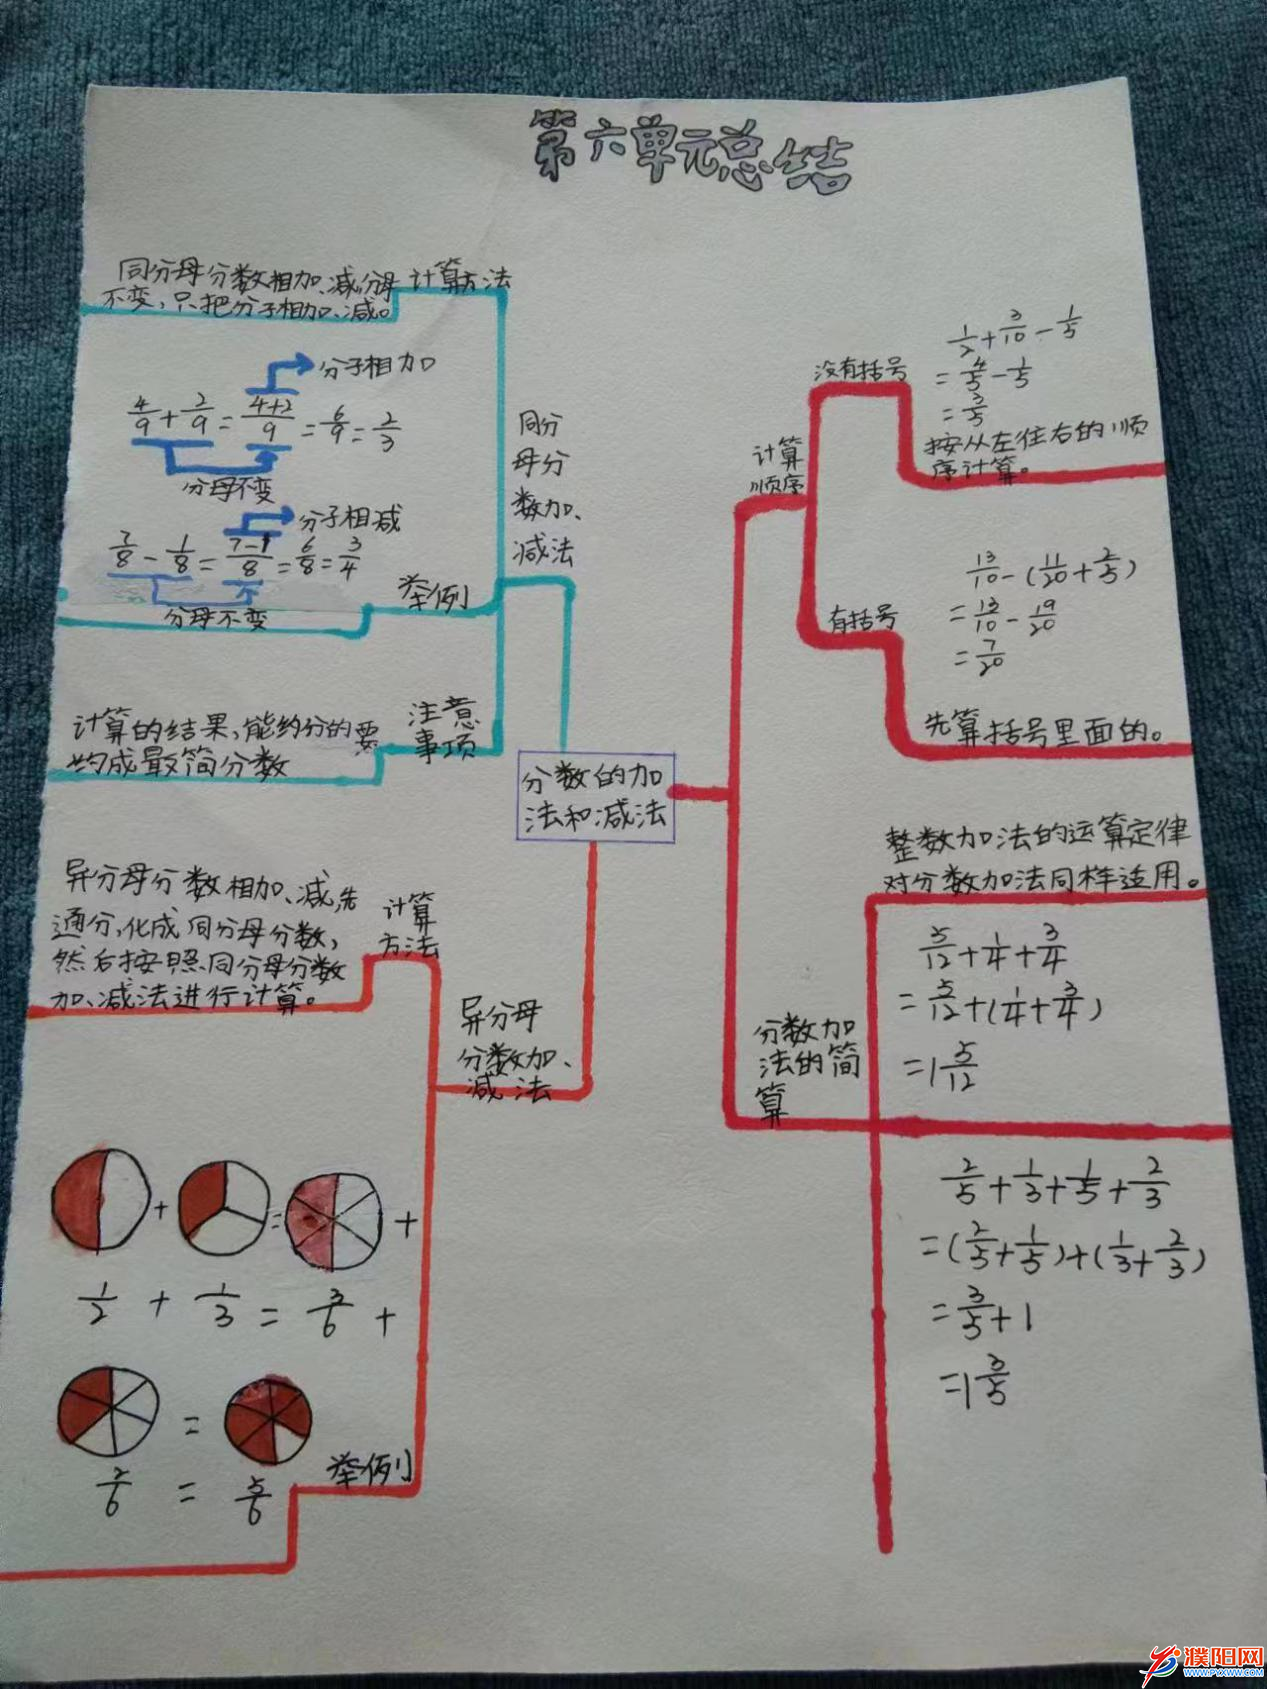 第六单元总结
同分母分数相加、减,分母
不变,只把分子相加、减。
计算方法
分子相加
4/9+2/9=(4+2)/9=6/9=2/3
分母不变
分子相减
7/8-1/8=(7-1)/8=6/8=3/4
分母不变
举例
同分
母分
数加、
减法
计算的结果,能约分的要
约成最简分数
注意
事项
分数的加
法和减法
异分母分数相加、减,先
通分,化成同分母分数,
然后按照同分母分数
加、减法进行计算。
计算
方法
异分母
分数加、
减法
+ = +
1/2 + 1/3 = 3/6 +
=
2/6 = 5/6
举例
计算
顺序
没有括号
1/2+3/10-1/5
=4/5-1/5
=3/5
按从左往右的顺
序计算。
有括号
13/10-(11/20+2/5)
=13/10-19/20
=7/20
先算括号里面的。
分数加
法的简
算
整数加法的运算定律
对分数加法同样适用。
5/12+1/4+3/4
=5/12+(1/4+3/4)
=1 5/12
2/5+1/3+1/5+2/3
=(2/5+1/5)+(1/3+2/3)
=3/5+1
=1 3/5
濮阳网
WWW.PYXWW.COM